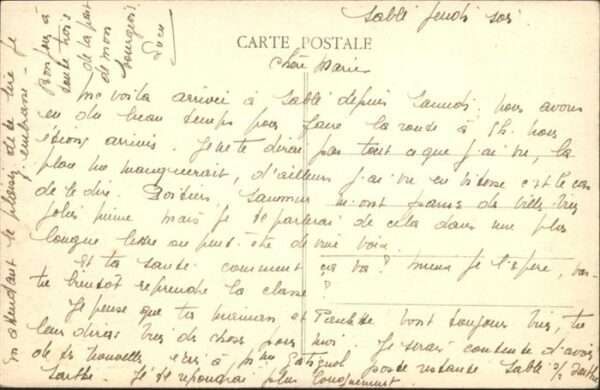 Sablé jeudi soir
CARTE POSTALE
Chère Marie
Me voilà arrivée à Sablé depuis Samedi. nous avons
eu du beau temps pour faire la route à 8h. nous
étions arrivés. Je ne te dirai pas tout ce que j'ai vu, la
place me manquerait, d'ailleurs j'ai vu en vitesse c'est le cas
de le dire. Poitiers, Saumur m'ont parus de villes très
jolies même mais je te parlerai de cela dans une plus
longue lettre ou peut-être de vive voix.
Et ta santé comment ça va? mieux je l'espère, vas-
tu bientôt reprendre la classe?
Je pense que ta maman et Paulette vont toujours bien, tu
leur diras bien de choses pour moi. Je serais contente d'avoir
de tes nouvelles écris à poste restante Sablé s/s Sarthe
Sarthe. Je te répondrai plus longuement
en attendant le plaisir de te lire je
t'embrasse.
Bonjour à
toute trois
de la part
de mon